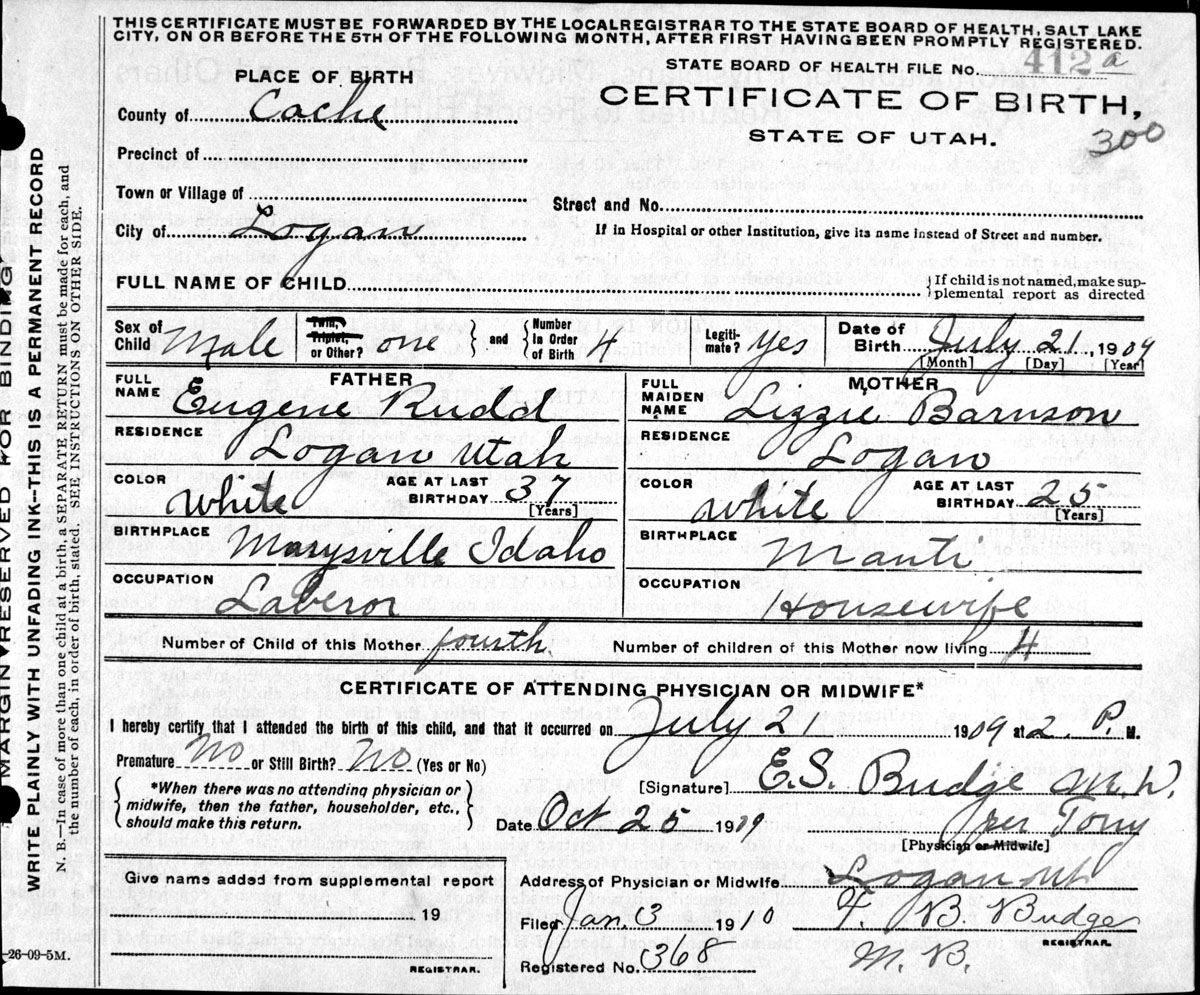 THIS CERTIFICATE MUST BE FORWARDED BY THE LOCAL REGISTRAR TO THE STATE BOARD OF HEALTH, SALT LAKE
CITY, ON OR BEFORE THE 5TH OF THE FOLLOWING MONTH, AFTER FIRST HAVING BEEN PROMPTLY REGISTERED.
STATE BOARD OF HEALTH FILE No. 412 a
PLACE OF BIRTH
CERTIFICATE OF BIRTH,
STATE OF UTAH.
300
County of Cache
Precinct of
Town or Village of
Street and No.
City of Logan
If in Hospital or other Institution, give its name instead of Street and number.
FULL NAME OF CHILD
If child is not named, make sup-
plemental report as directed
Sex of Child Male Twin, Triplet, or Other? one and Number In Order of Birth 4 Legiti-mate? yes Date of Birth July 21, 1909
[Month] [Day] [Year]
FATHER
FULL NAME Eugene Rudd
RESIDENCE Logan Utah
COLOR White AGE AT LAST BIRTHDAY 37 [Years]
BIRTHPLACE Marysville Idaho
OCCUPATION Laberor
MOTHER
FULL MAIDEN NAME Lizzie Barnson
RESIDENCE Logan
COLOR White AGE AT LAST BIRTHDAY 25 [Years]
BIRTHPLACE Manti
OCCUPATION Housewife
Number of Child of this Mother fourth Number of children of this Mother now living 4
CERTIFICATE OF ATTENDING PHYSICIAN OR MIDWIFE*
I hereby certify that I attended the birth of this child, and that it occurred on July 21 1909 at 2 P. M.
Premature No or Still Birth? No (Yes or No)
*When there was no attending physician or
midwife, then the father, householder, etc.,
should make this return.
[Signature] E.S. Budge M.D.
per Torry
Date Oct 25 1909
[Physician or Midwife]
Give name added from supplemental report
19
REGISTRAR.
Address of Physician or Midwife Logan Ut
Filed Jan. 3 1910 T. B. Budge
REGISTRAR.
M. D.
Registered No. 368
-26-09-5M.
MARGIN RESERVED FOR BINDING
WRITE PLAINLY WITH UNFADING INK—THIS IS A PERMANENT RECORD
N. B.—In case of more than one child at a birth, a SEPARATE RETURN must be made for each, and
the number of each, in order of birth, stated. SEE INSTRUCTIONS ON OTHER SIDE.